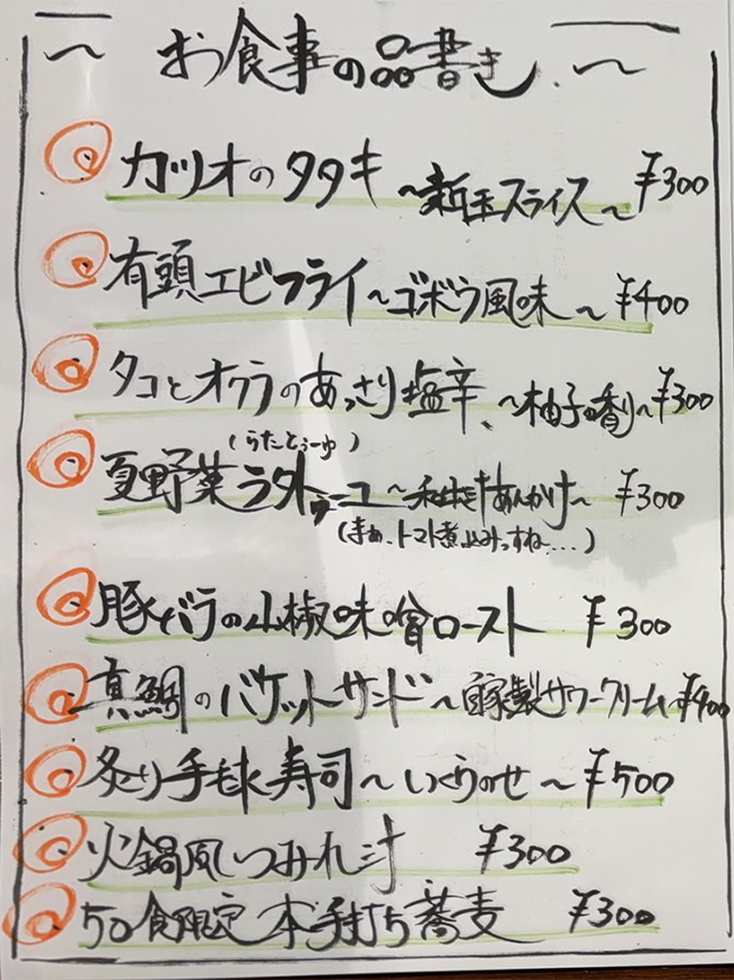 〜 お食事の品書き 〜
カツオのタタキ 〜新玉スライス〜 ¥300
有頭エビフライ〜ゴボウ風味〜 ¥400
タコとオクラのあっさり塩辛、〜柚子の香り〜 ¥300
(らたとぅーゆ)
夏野菜ラタトゥーユ〜和出汁あんかけ〜 ¥300
(まぁ、トマト煮込みっすね…)
豚バラの山椒味噌ロースト ¥300
真鯛のバケットサンド〜自家製サワークリーム ¥400
炙り手毬寿司〜いくらのせ〜 ¥500
火鍋風つみれ汁 ¥300
50食限定 本手打ち蕎麦 ¥300